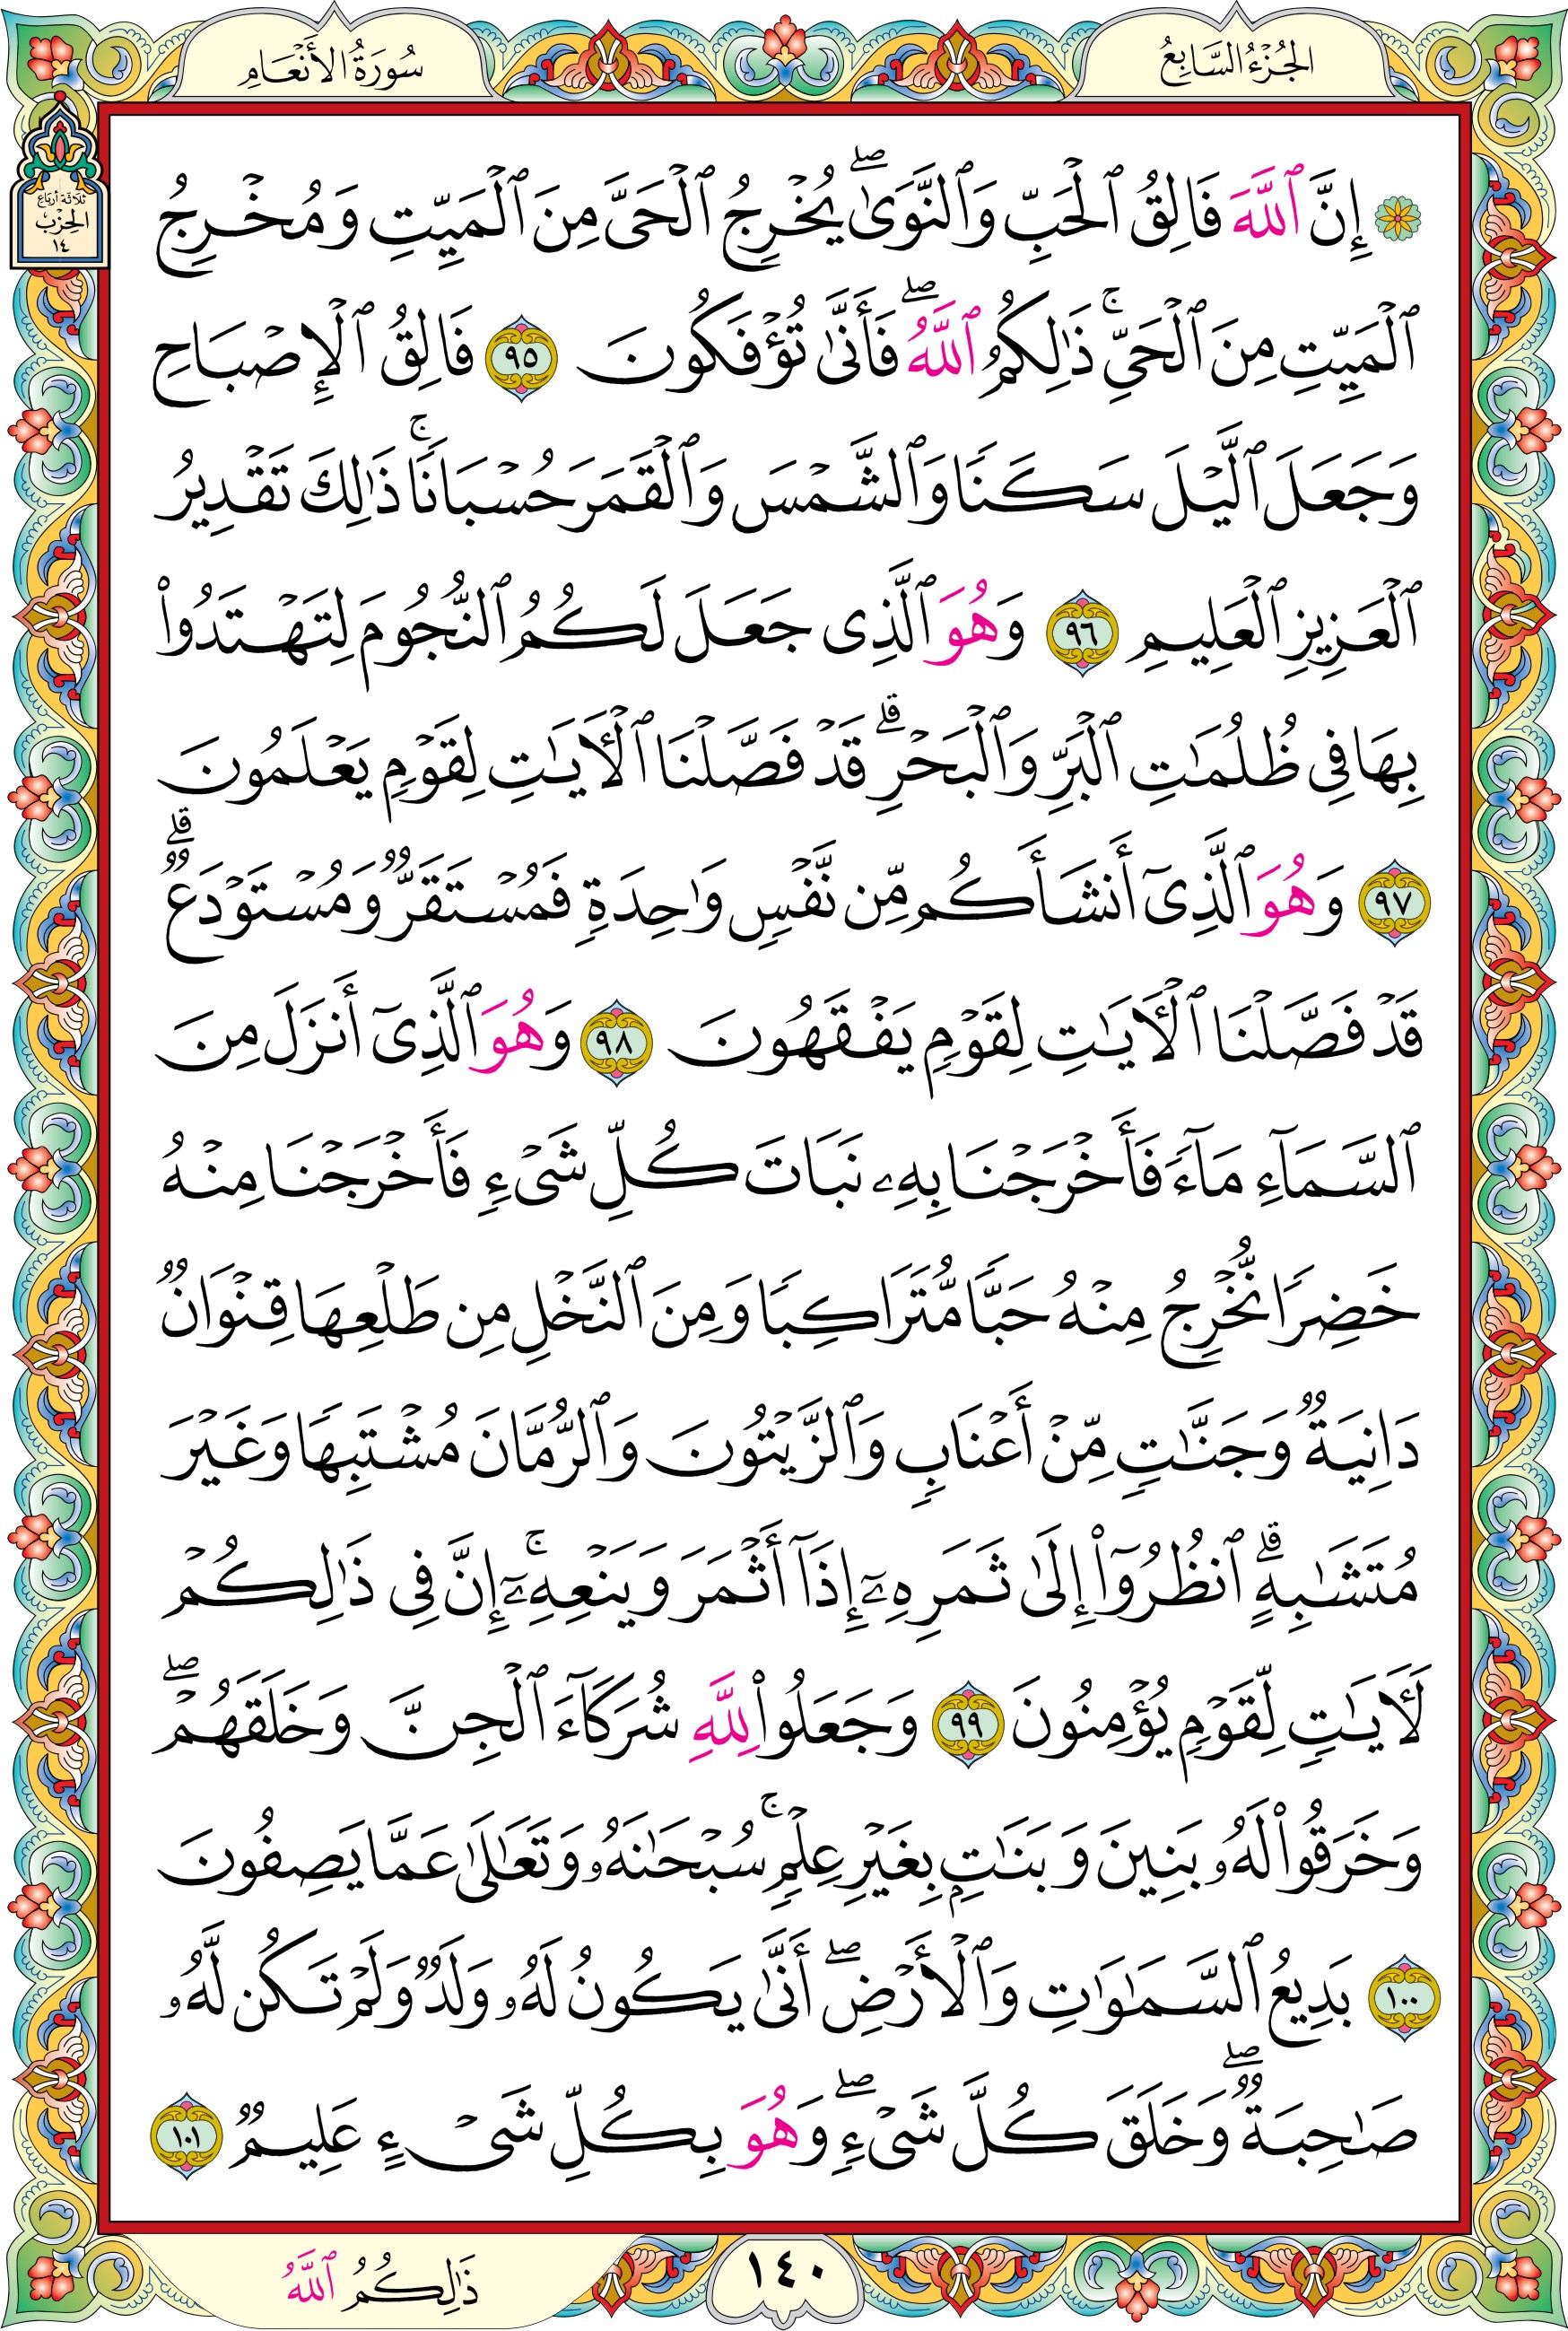 الجُزْءُ السَّابِعُ
سُورَةُ الأَنْعَامِ
ثلاثة أرباع
الحِزْب
١٤
۞ إِنَّ ٱللَّهَ فَالِقُ ٱلْحَبِّ وَٱلنَّوَىٰۖ يُخْرِجُ ٱلْحَىَّ مِنَ ٱلْمَيِّتِ وَمُخْرِجُ
ٱلْمَيِّتِ مِنَ ٱلْحَىِّۚ ذَٰلِكُمُ ٱللَّهُۖ فَأَنَّىٰ تُؤْفَكُونَ ٩٥ فَالِقُ ٱلْإِصْبَاحِ
وَجَعَلَ ٱلَّيْلَ سَكَنًا وَٱلشَّمْسَ وَٱلْقَمَرَ حُسْبَانًاۚ ذَٰلِكَ تَقْدِيرُ
ٱلْعَزِيزِ ٱلْعَلِيمِ ٩٦ وَهُوَ ٱلَّذِى جَعَلَ لَكُمُ ٱلنُّجُومَ لِتَهْتَدُوا۟
بِهَا فِى ظُلُمَٰتِ ٱلْبَرِّ وَٱلْبَحْرِۗ قَدْ فَصَّلْنَا ٱلْـَٔايَٰتِ لِقَوْمٍ يَعْلَمُونَ
٩٧ وَهُوَ ٱلَّذِىٓ أَنشَأَكُم مِّن نَّفْسٍ وَٰحِدَةٍ فَمُسْتَقَرٌّ وَمُسْتَوْدَعٌۗ
قَدْ فَصَّلْنَا ٱلْـَٔايَٰتِ لِقَوْمٍ يَفْقَهُونَ ٩٨ وَهُوَ ٱلَّذِىٓ أَنزَلَ مِنَ
ٱلسَّمَآءِ مَآءً فَأَخْرَجْنَا بِهِۦ نَبَاتَ كُلِّ شَىْءٍ فَأَخْرَجْنَا مِنْهُ
خَضِرًا نُّخْرِجُ مِنْهُ حَبًّا مُّتَرَاكِبًا وَمِنَ ٱلنَّخْلِ مِن طَلْعِهَا قِنْوَانٌ
دَانِيَةٌ وَجَنَّٰتٍ مِّنْ أَعْنَابٍ وَٱلزَّيْتُونَ وَٱلرُّمَّانَ مُشْتَبِهًا وَغَيْرَ
مُتَشَٰبِهٍۗ ٱنظُرُوٓا۟ إِلَىٰ ثَمَرِهِۦٓ إِذَآ أَثْمَرَ وَيَنْعِهِۦٓۚ إِنَّ فِى ذَٰلِكُمْ
لَـَٔايَٰتٍ لِّقَوْمٍ يُؤْمِنُونَ ٩٩ وَجَعَلُوا۟ لِلَّهِ شُرَكَآءَ ٱلْجِنَّ وَخَلَقَهُمْۖ
وَخَرَقُوا۟ لَهُۥ بَنِينَ وَبَنَٰتٍۭ بِغَيْرِ عِلْمٍۚ سُبْحَٰنَهُۥ وَتَعَٰلَىٰ عَمَّا يَصِفُونَ
١٠٠ بَدِيعُ ٱلسَّمَٰوَٰتِ وَٱلْأَرْضِۖ أَنَّىٰ يَكُونُ لَهُۥ وَلَدٌ وَلَمْ تَكُن لَّهُۥ
صَٰحِبَةٌۖ وَخَلَقَ كُلَّ شَىْءٍۖ وَهُوَ بِكُلِّ شَىْءٍ عَلِيمٌ ١٠١
١٤٠
ذَٰلِكُمُ ٱللَّهُ